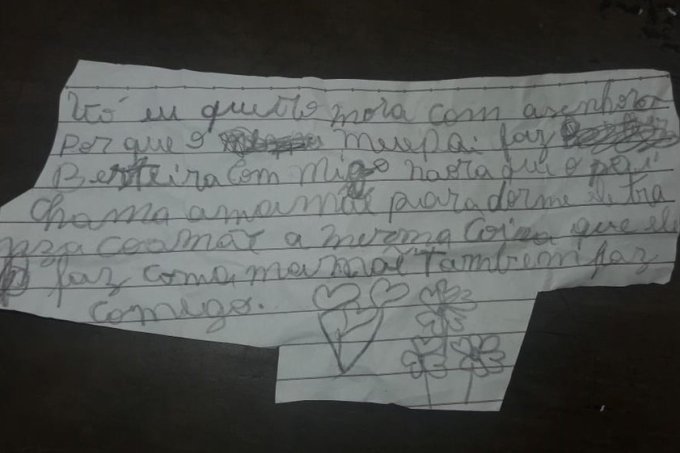 Vó eu quero mora com asenhora
Por que o meupai faz
Besteira com migo naora que o pai
chama amamãe para dormi ele tra
nza coamãe a mesma coisa que ele
faz coma mamãe também faz
comigo.